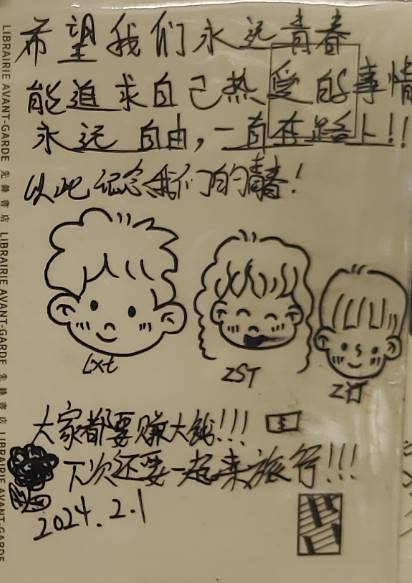 希望我们永远青春
能追求自己热爱的事情
永远自由，一直在路上!!
以此纪念我们的青春!
Lxt
ZST
大家都要赚大钱!!!
$
下次还要一起来旅行!!!
2024.2.1
LIBRAIRIE AVANT-GARDE 先锋书店 LIBRAIRIE AVANT-GARDE 先锋书店 LIBRAIRIE AVANT-GARDE